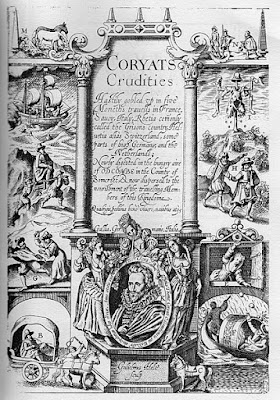 CORYATS
Crudities
Hastily gobled up in five
Moneths travells in France,
Savoy, Italy, Rhetia comonly
called the Grisons country, Hel-
vetia aliàs Switzerland, some
parts of high Germany, and the
Netherlands;
Newly digested in the hungry aire
of ODCOMBE in the County of
Somerset, & now dispersed to the
nourishment of the travelling Mem-
bers of this Kingdome.
Gallia
Italia
Gulielmus Hole
sculp